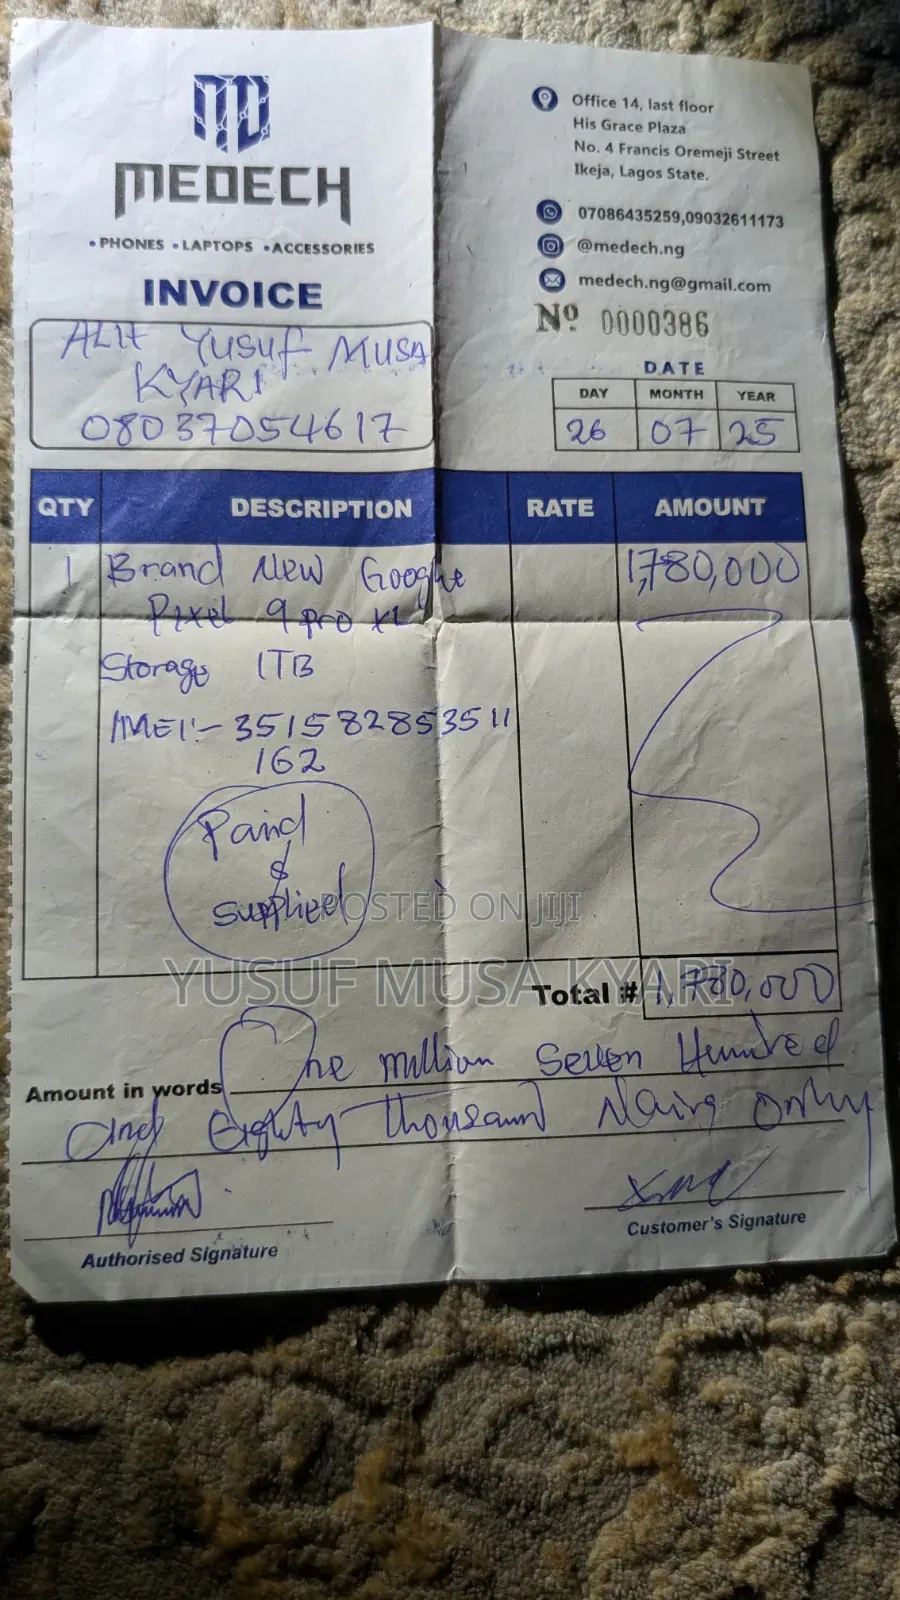 MEDECH
• PHONES • LAPTOPS • ACCESSORIES
INVOICE
Office 14, last floor
His Grace Plaza
No. 4 Francis Oremeji Street
Ikeja, Lagos State.
07086435259,09032611173
@medech.ng
medech.ng@gmail.com
Nº 0000386
ALH YUSUF MUSA
KYARI
08037054617
DATE
DAY MONTH YEAR
26 07 25
QTY DESCRIPTION RATE AMOUNT
1 Brand New Google 1,780,000
Pixel 9 Pro XL
Storage 1TB
IMEI:- 351582853511
162
Paid
&
supplied
POSTED ON JIJI
YUSUF MUSA KYARI
Total # 1,780,000
Amount in words One million Seven Hundred
and Eighty thousand Naira only
Authorised Signature
Customer's Signature